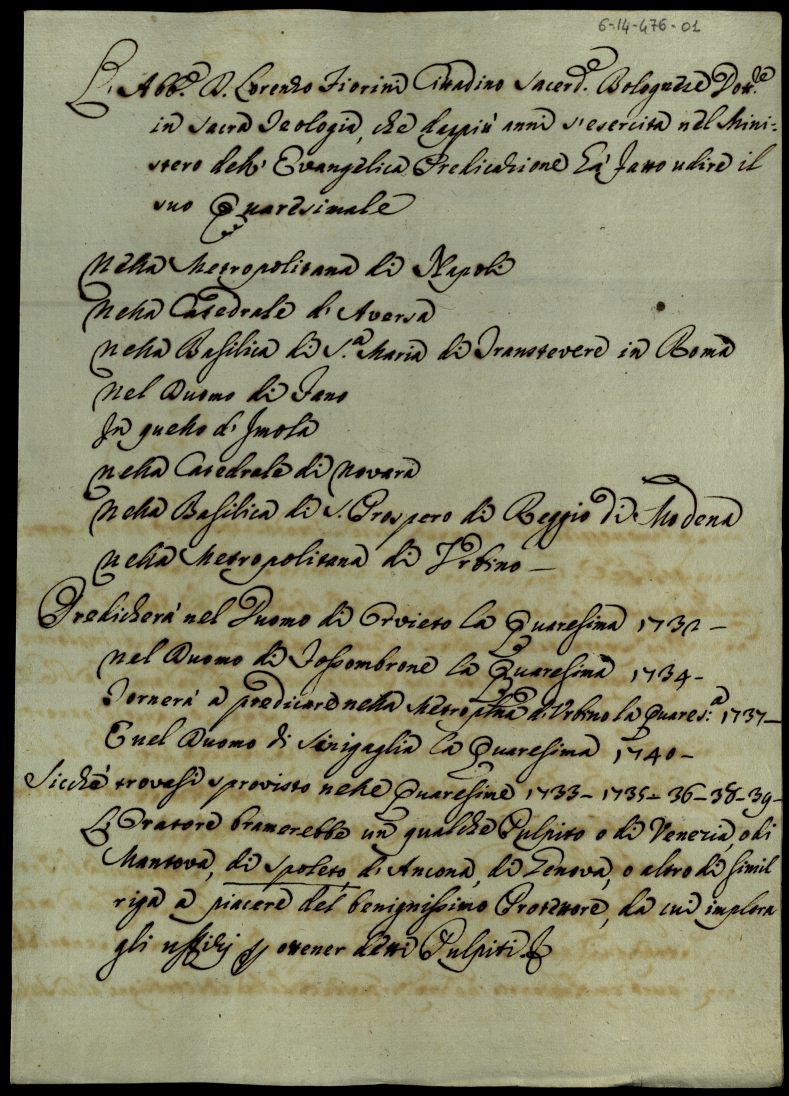 6-14-476-01
L'Abb.e D. Lorenzo Fiorini Cittadino Sacerd.e Bolognese Dott.re
in Sacra Teologia, che da più anni s'esercita nel Mini-
stero dell'Evangelica Predicazione hà fatto udire il
suo Quaresimale
nella Metropolitana di Napoli
nella Catedrale d'Aversa
nella Basilica di S.a Maria di Transtevere in Roma
nel Duomo di Fano
In quello d'Imola
nella Catedrale di Novara
nella Basilica di S. Prospero di Reggio di Modena
nella Metropolitana di Urbino –
Predicherà nel Duomo di Orvieto la Quaresima 1732 –
nel Duomo di Fossombrone la Quaresima 1734 –
Tornerà a predicare nella Metropna d'Urbino la Quares:a 1737 –
E nel Duomo di Sinigaglia la Quaresima 1740 –
Sicchè trovasi sprovisto nelle Quaresime 1733 – 1735 – 36 – 38 – 39 –
L'Oratore bramerebbe un qualche Pulpito o di Venezia, o di
Mantova, di Spoleto di Ancona, di Genova, o altro di simil
riga a piacere del benignissimo Protettore, da cui implora
gli uffizij p ottener detti Pulpiti